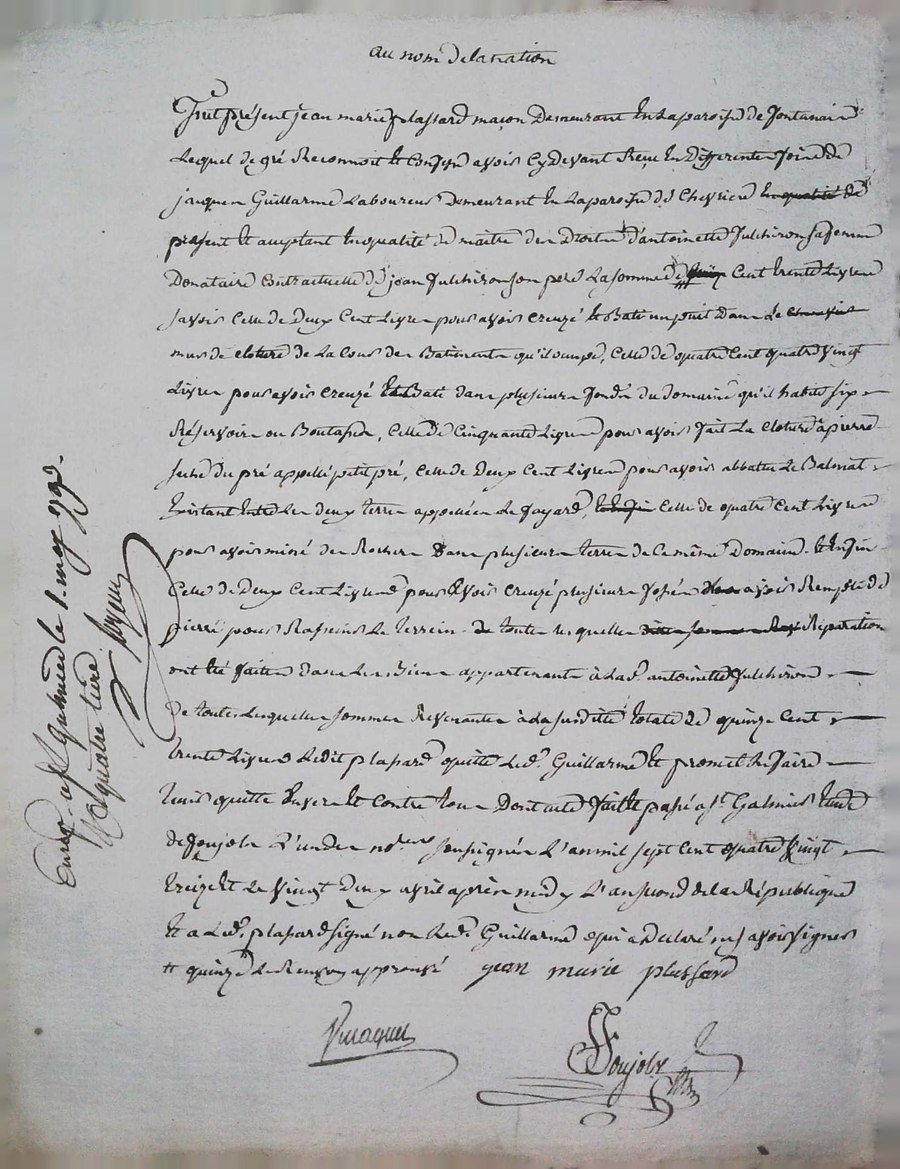 au nom de la nation
Fut présent jean marie plassard maçon Demeurant En La paroisse de fontanaire
Lequel de gré Reconnoit Et Confesse avoir Cydevant Reçu En Differentes foire de
jacques Guillarme Laboureur Demeurant En La paroisse de Chevriere En qualité de
present Et acceptant En qualité de maitre des Droits d'antoinette fulchiron sa femme
Donataire Contractuelle de jean fulchiron son pere La somme de quinze Cent trente Livres
savoir Celle de Deux Cent Livres pour avoir creuzé Et Bati un puit Dans Le
mur de cloture de La Cour des Batiments qu'il occupe, Celle de quatre Cent quatre vingt
Livres pour avoir creuzé Et Bati dans plusieurs fonds du domaine qu'il habite six
Réservoir ou Boutasse, Celle de Cinquante Livres pour avoir fait La cloture à pierre
seche du pré appellé petit pré, Celle de Deux Cent Livres pour avoir abbattu Le Balmat
Existant Entre Les deux terres appellées Le fayard, Et Enfin Celle de quatre Cent Livres
pour avoir miné des Rochers Dans plusieurs terres de Ce même Domaine. Et Enfin
Celle de Deux Cent Livres pour avoir creuzé plusieurs fossés avoir Rempli de
pierre pour Rassenir Le terrein. De toutes lesquelles Réparations
ont été faites Dans Les Biens appartenants à Lad. antoinette fulchiron
De toutes Lesquelles sommes Revenantes à La susditte totale de quinze Cent
trente Livres Ledit plassard quitte Led. Guillarme Et promet Le faire
tenir quitte Envers Et Contre tous Dont acte fait Et passé a St. Galmier Etude
de foujols L'un des no.res soussignés L'an mil sept Cent quatre vingt
treize Et Le vingt Deux avril après midy L'an second de la République
Et a Led. plassard signé non Led. Guillarme qui a Declaré ne savoir signer
Et quinze De Renvoy approuvé jean marie plassard
foujols
Enreg. a St Galmier le 1. may 1793.
R quatre livre